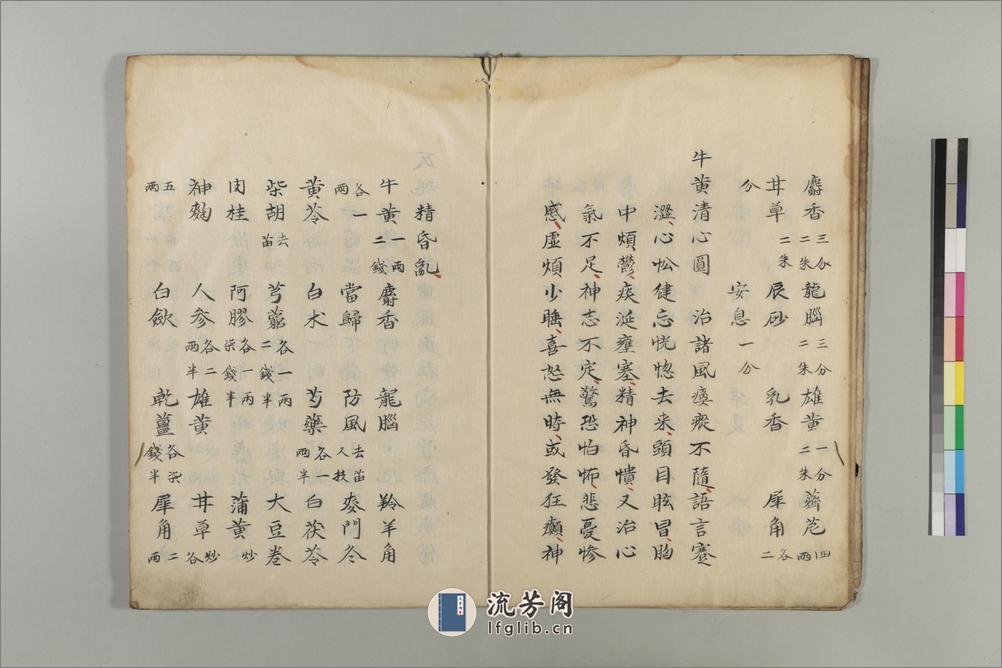 麝香三分二朱龍腦三分二朱雄黃一分二朱薺苨四兩
甘草二朱辰砂 乳香 犀角各二
分 安息一分
牛黃清心圓 治諸風瘈瘲不隨語言蹇
澀心忪健忘恍惚去来頭目眩冒胸
中煩鬱痰涎壅塞精神昏憒又治心
氣不足神志不定驚恐怕怖悲憂慘
感虛煩少睡喜怒無時或發狂癲神
精昏亂
牛黃一兩二錢麝香 龍腦 羚羊角
各一兩當歸 防風去苗人技麥門冬
黃芩 白朮 芍藥各一兩半白茯苓
柴胡去苗芎藭各一兩二錢半大豆卷
肉桂 阿膠各一兩柒錢半蒲黃炒
神麴 人参各二兩半雄黃 甘草炒各
五兩 白歛 乾薑各柒錢半犀角二兩
流芳阁
lfglib.cn